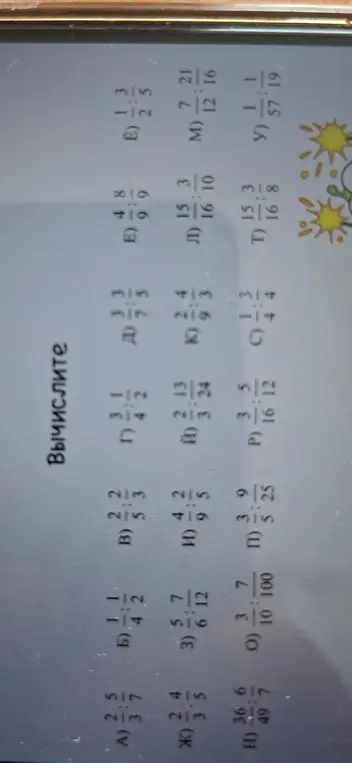 Вычислите
А) 2/3 : 5/7 Б) 1/4 : 1/2 В) 2/5 : 2/3 Г) 3/4 : 1/2 Д) 3/7 : 3/5 Е) 4/9 : 8/9 Ё) 1/2 : 3/5
Ж) 2/3 : 4/5 З) 5/6 : 7/12 И) 4/9 : 2/5 Й) 2/3 : 13/24 К) 2/9 : 4/3 Л) 15/16 : 3/10 М) 7/12 : 21/16
Н) 36/49 : 6/7 О) 3/10 : 7/100 П) 3/5 : 9/25 Р) 3/16 : 5/12 С) 1/4 : 3/4 Т) 15/16 : 3/8 У) 1/57 : 1/19